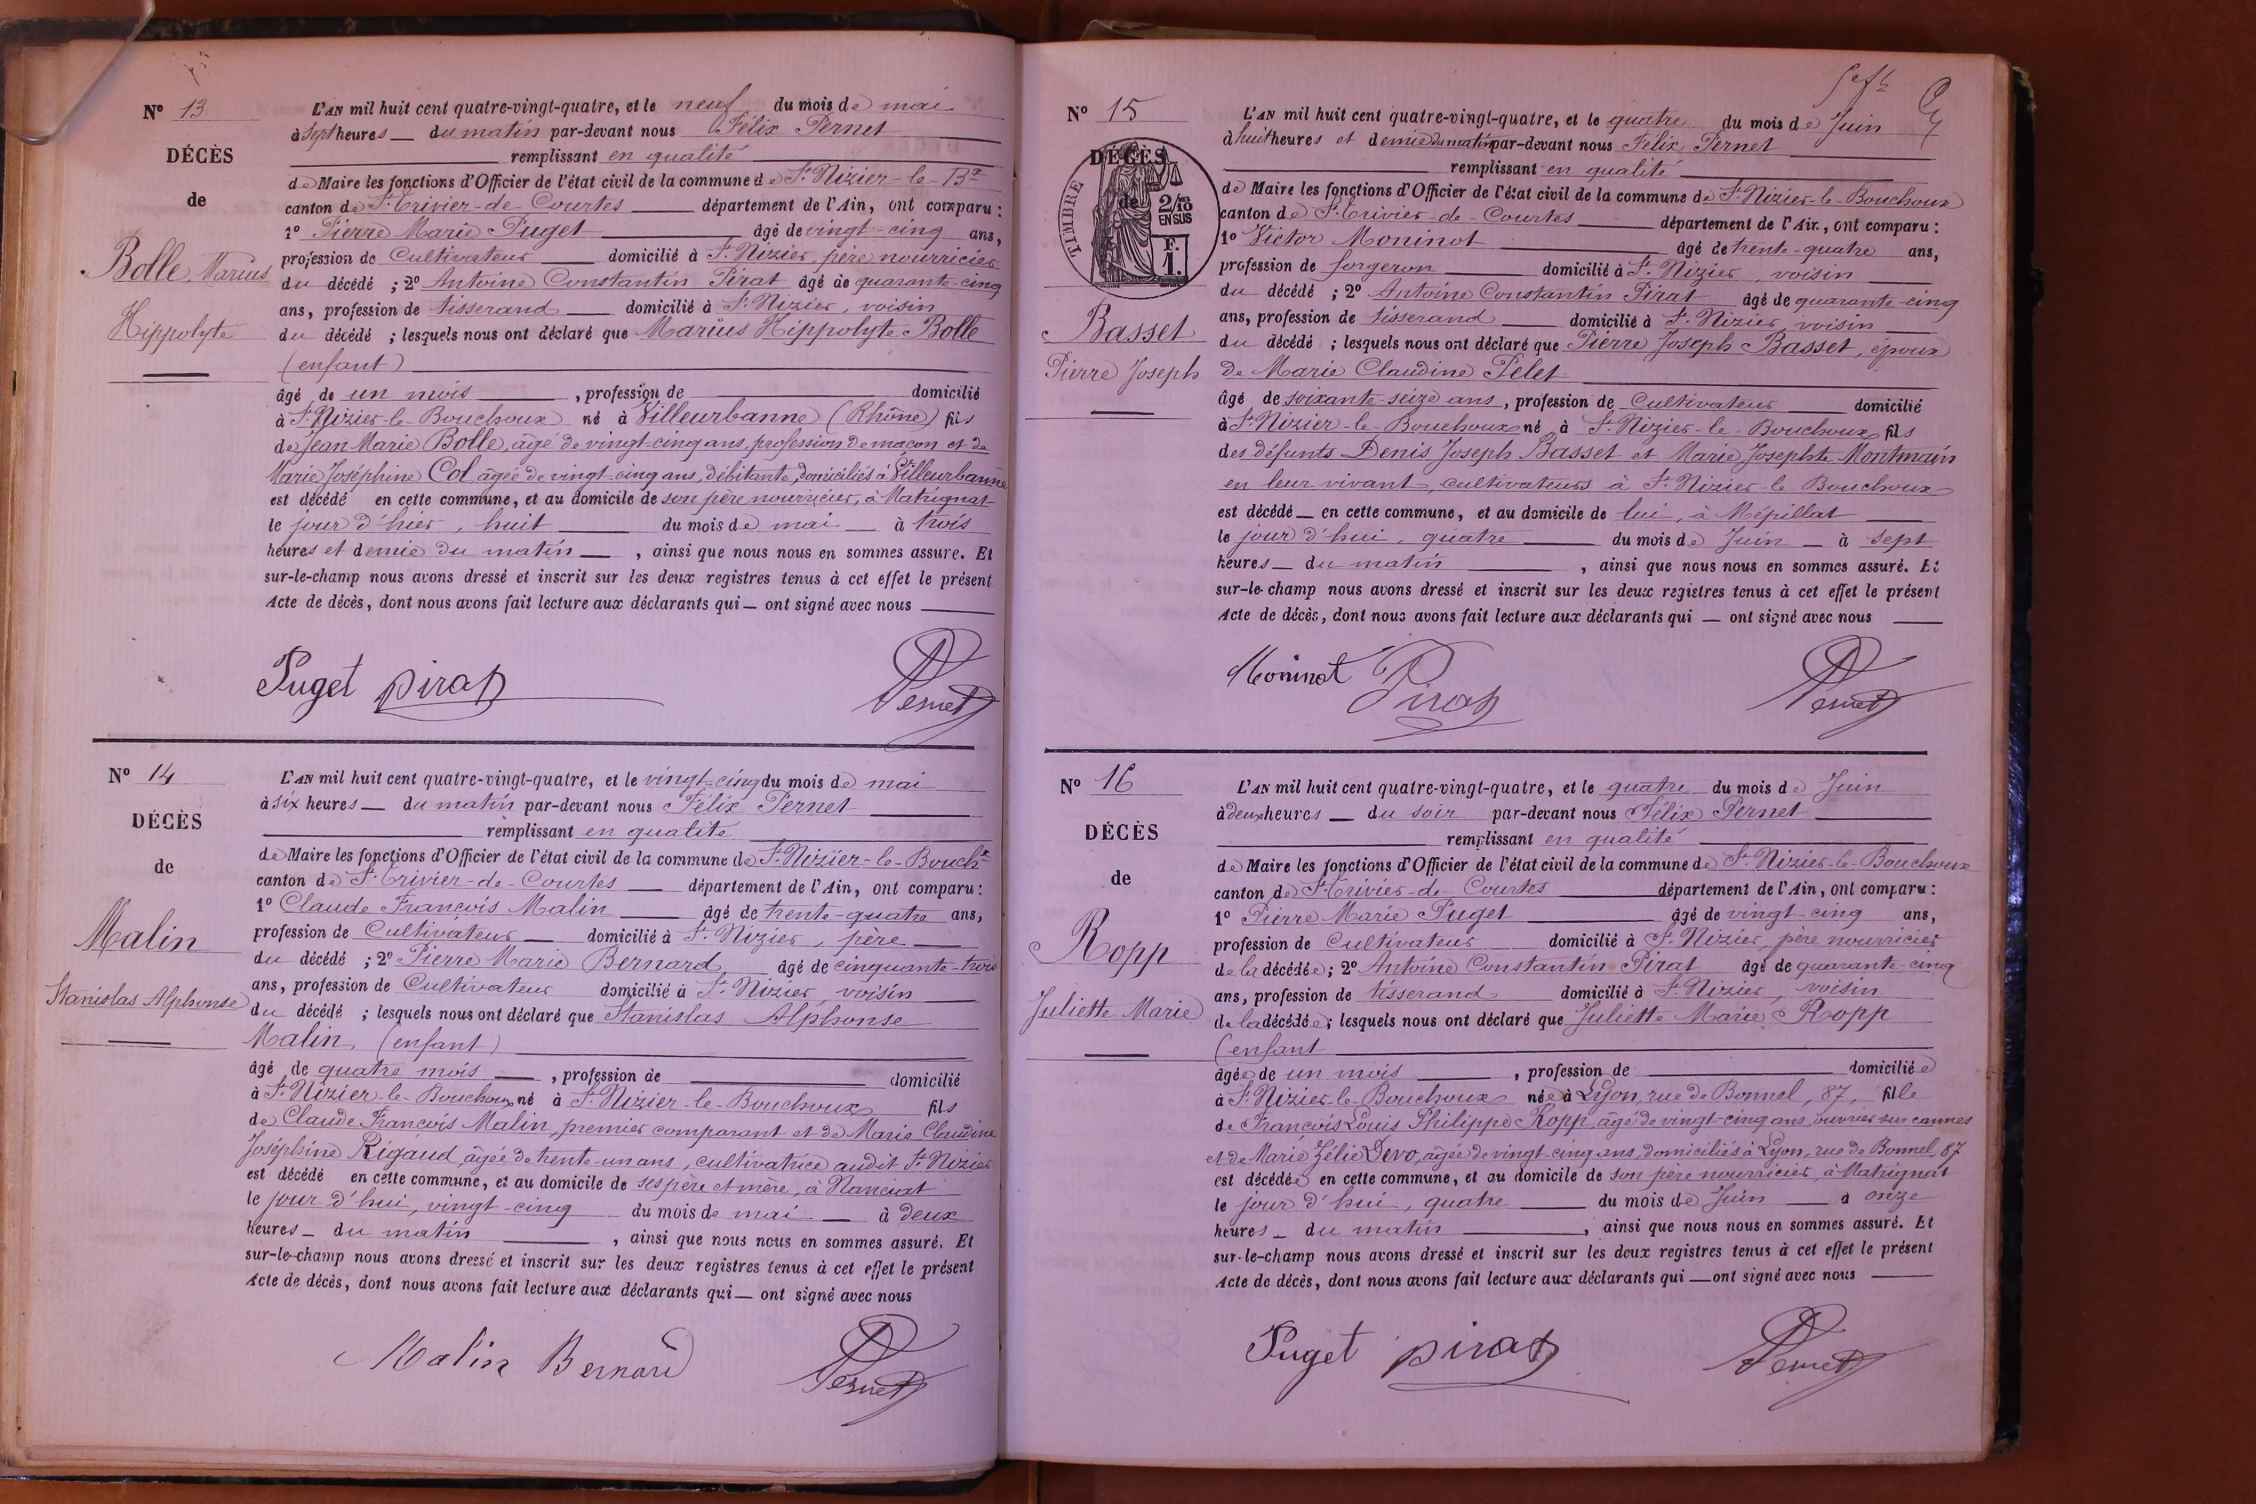 Nº 13
DÉCÈS
de
Bolle, Marius
Hippolyte
L'AN mil huit cent quatre-vingt-quatre, et le neuf du mois de mai
à sept heures — du matin par-devant nous Félix Pernet
remplissant en qualité
de Maire les fonctions d'Officier de l'état civil de la commune de St Nizier-le-Bx
canton de St Trivier-de-Courtes — département de l'Ain, ont comparu :
1º Pierre Marie Puget âgé de vingt-cinq ans,
profession de Cultivateur — domicilié à St Nizier, père nourricier
du décédé ; 2º Antoine Constantin Pirat âgé de quarante-cinq
ans, profession de tisserand — domicilié à St Nizier, voisin
du décédé ; lesquels nous ont déclaré que Marius Hippolyte Bolle
(enfant)
âgé de un mois , profession de domicilié
à St Nizier-le-Bouchoux né à Villeurbanne (Rhône) fils
de Jean Marie Bolle, âgé de vingt-cinq ans, profession de maçon et de
Marie Joséphine Col âgée de vingt-cinq ans, débitante, domiciliés à Villeurbanne
est décédé en cette commune, et au domicile de son père nourricier, à Matrignat
le jour d'hier, huit du mois de mai — à trois
heures et demie du matin — , ainsi que nous nous en sommes assuré. Et
sur-le-champ nous avons dressé et inscrit sur les deux registres tenus à cet effet le présent
Acte de décès, dont nous avons fait lecture aux déclarants qui — ont signé avec nous
Puget Pirat Pernet
Nº 14
DÉCÈS
de
Malin
Stanislas Alphonse
L'AN mil huit cent quatre-vingt-quatre, et le vingt-cinq du mois de mai
à six heures — du matin par-devant nous Félix Pernet
remplissant en qualité
de Maire les fonctions d'Officier de l'état civil de la commune de St Nizier-le-Bouchx
canton de St Trivier-de-Courtes — département de l'Ain, ont comparu :
1º Claude François Malin — âgé de trente-quatre ans,
profession de Cultivateur — domicilié à St Nizier, père —
du décédé ; 2º Pierre Marie Bernard âgé de cinquante-trois
ans, profession de Cultivateur domicilié à St Nizier, voisin
du décédé ; lesquels nous ont déclaré que Stanislas Alphonse
Malin, (enfant)
âgé de quatre mois — , profession de domicilié
à St Nizier-le-Bouchoux né à St Nizier-le-Bouchoux fils
de Claude François Malin, premier comparant et de Marie Claudine
Joséphine Rigaud, âgée de trente-un ans, cultivatrice audit St Nizier
est décédé en cette commune, et au domicile de ses père et mère, à Nanciat
le jour d'hui, vingt-cinq du mois de mai — à deux
heures — du matin , ainsi que nous nous en sommes assuré. Et
sur-le-champ nous avons dressé et inscrit sur les deux registres tenus à cet effet le présent
Acte de décès, dont nous avons fait lecture aux déclarants qui — ont signé avec nous
Malin Bernard Pernet
Nº 15
DÉCÈS
de
TIMBRE
2/10es
EN SUS
F.
1.
Basset
Pierre Joseph
L'AN mil huit cent quatre-vingt-quatre, et le quatre du mois de Juin
à huit heures et demie du matin par-devant nous Félix Pernet
remplissant en qualité
de Maire les fonctions d'Officier de l'état civil de la commune de St Nizier-le-Bouchoux
canton de St Trivier-de-Courtes — département de l'Ain, ont comparu :
1º Victor Moninot âgé de trente-quatre ans,
profession de forgeron domicilié à St Nizier, voisin
du décédé ; 2º Antoine Constantin Pirat âgé de quarante-cinq
ans, profession de tisserand — domicilié à St Nizier, voisin
du décédé ; lesquels nous ont déclaré que Pierre Joseph Basset, époux
de Marie Claudine Pelet
âgé de soixante-seize ans, profession de Cultivateur — domicilié
à St Nizier-le-Bouchoux né à St Nizier-le-Bouchoux fils
des défunts Denis Joseph Basset et Marie Josephte Montmain
en leur vivant, cultivateurs à St Nizier-le-Bouchoux
est décédé — en cette commune, et au domicile de lui, à Mépillat
le jour d'hui, quatre du mois de Juin — à sept
heures — du matin , ainsi que nous nous en sommes assuré. Et
sur-le-champ nous avons dressé et inscrit sur les deux registres tenus à cet effet le présent
Acte de décès, dont nous avons fait lecture aux déclarants qui — ont signé avec nous
Moninot Pirat Pernet
Nº 16
DÉCÈS
de
Ropp
Juliette Marie
L'AN mil huit cent quatre-vingt-quatre, et le quatre du mois de Juin
à deux heures — du soir par-devant nous Félix Pernet
remplissant en qualité
de Maire les fonctions d'Officier de l'état civil de la commune de St Nizier-le-Bouchoux
canton de St Trivier-de-Courtes département de l'Ain, ont comparu :
1º Pierre Marie Puget âgé de vingt-cinq ans,
profession de Cultivateur domicilié à St Nizier, père nourricier
de la décédée ; 2º Antoine Constantin Pirat âgé de quarante-cinq
ans, profession de tisserand domicilié à St Nizier, voisin
de la décédée ; lesquels nous ont déclaré que Juliette Marie Ropp
(enfant
âgée de un mois , profession de domiciliée
à St Nizier-le-Bouchoux née à Lyon, rue de Bonnel, 87, fille
de François Louis Philippe Ropp, âgé de vingt-cinq ans, ouvrier sur cannes
et de Marie Zélie Devo, âgée de vingt-cinq ans, domiciliés à Lyon, rue de Bonnel, 87
est décédée en cette commune, et au domicile de son père nourricier, à Matrignat
le jour d'hui, quatre du mois de Juin — à onze
heures — du matin , ainsi que nous nous en sommes assuré. Et
sur-le-champ nous avons dressé et inscrit sur les deux registres tenus à cet effet le présent
Acte de décès, dont nous avons fait lecture aux déclarants qui — ont signé avec nous
Puget Pirat Pernet